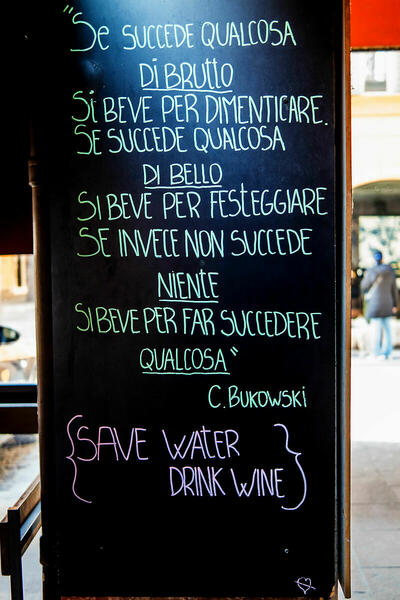 "Se SUCCEDE QUALCOSA
DI BRUTTO
Si BEVE PER DIMENTICARE.
SE SUCCEDE QUALCOSA
DI BELLO
SI BEVE PER FESTEGGIARE
SE INVECE NON SUCCEDE
NIENTE
SI BEVE PER FAR SUCCEDERE
QUALCOSA"
C. BUKOWSKI
{SAVE WATER
DRINK WINE}